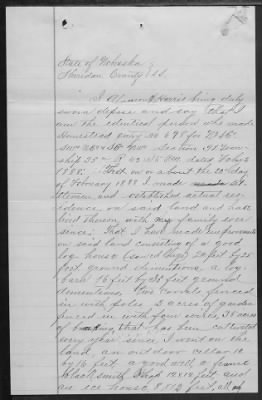 State of Nebraska
Sheridan County } SS.
I Harris being duly
sworn depose and say that I
am the identical person who made
Homestead entry No 698 for
Section Town
ship 35 N R 43 dated Feby 6
1888. That on or about the 20th day
of February 1888 I made settlement
and established actual res
idence on said land and have
lived thereon with my family ever
since. That I have made improvements
on said land consisting of a good
log house 20 feet by 25
feet ground dimentions, a log
barn 16 feet by 35 feet ground
dimentions, two corrals fenced
in with poles 3 acres of garden
fenced in with four wires, 38 acres
of breaking that has been cultivated
every year since I went on the
land, an out door cellar 12
by 16 feet a good well, a frame
blacksmith shop 12x12 feet and
an ice house 8x12 feet, all of